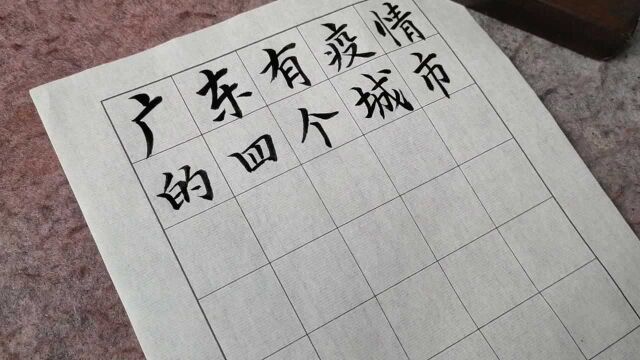 广东有疫情
的四个城市